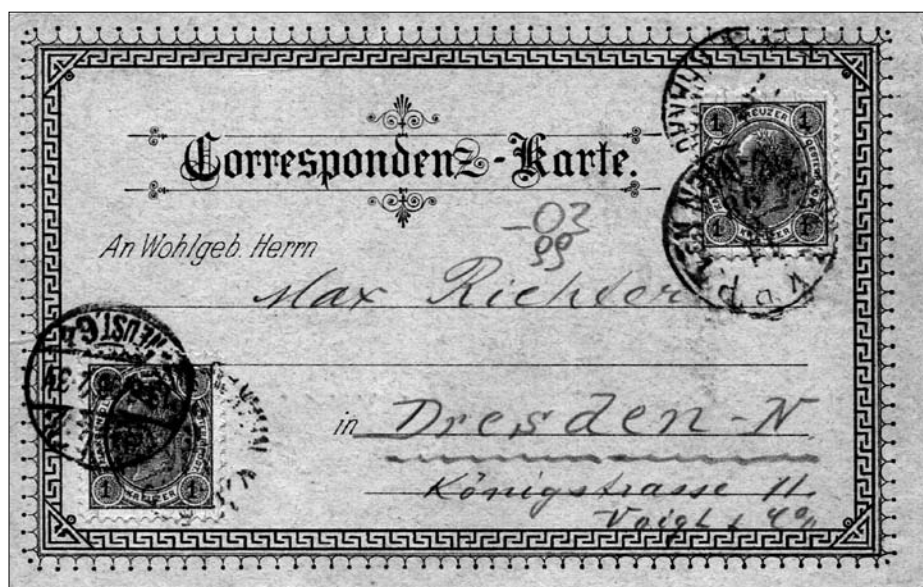 Correspondenz-Karte.
-03
99
An Wohlgeb. Herrn
Max Richter
in Dresden-N
Königstrasse 11.
Voigt & Co
1 KREUZER 1
1 KREUZER 1
NEUST
1 KREUZER 1